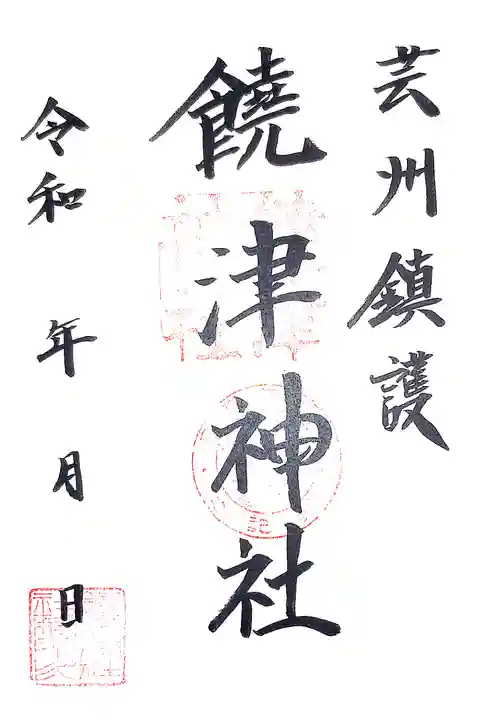 芸州鎮護
饒津神社
令和 年 月 日